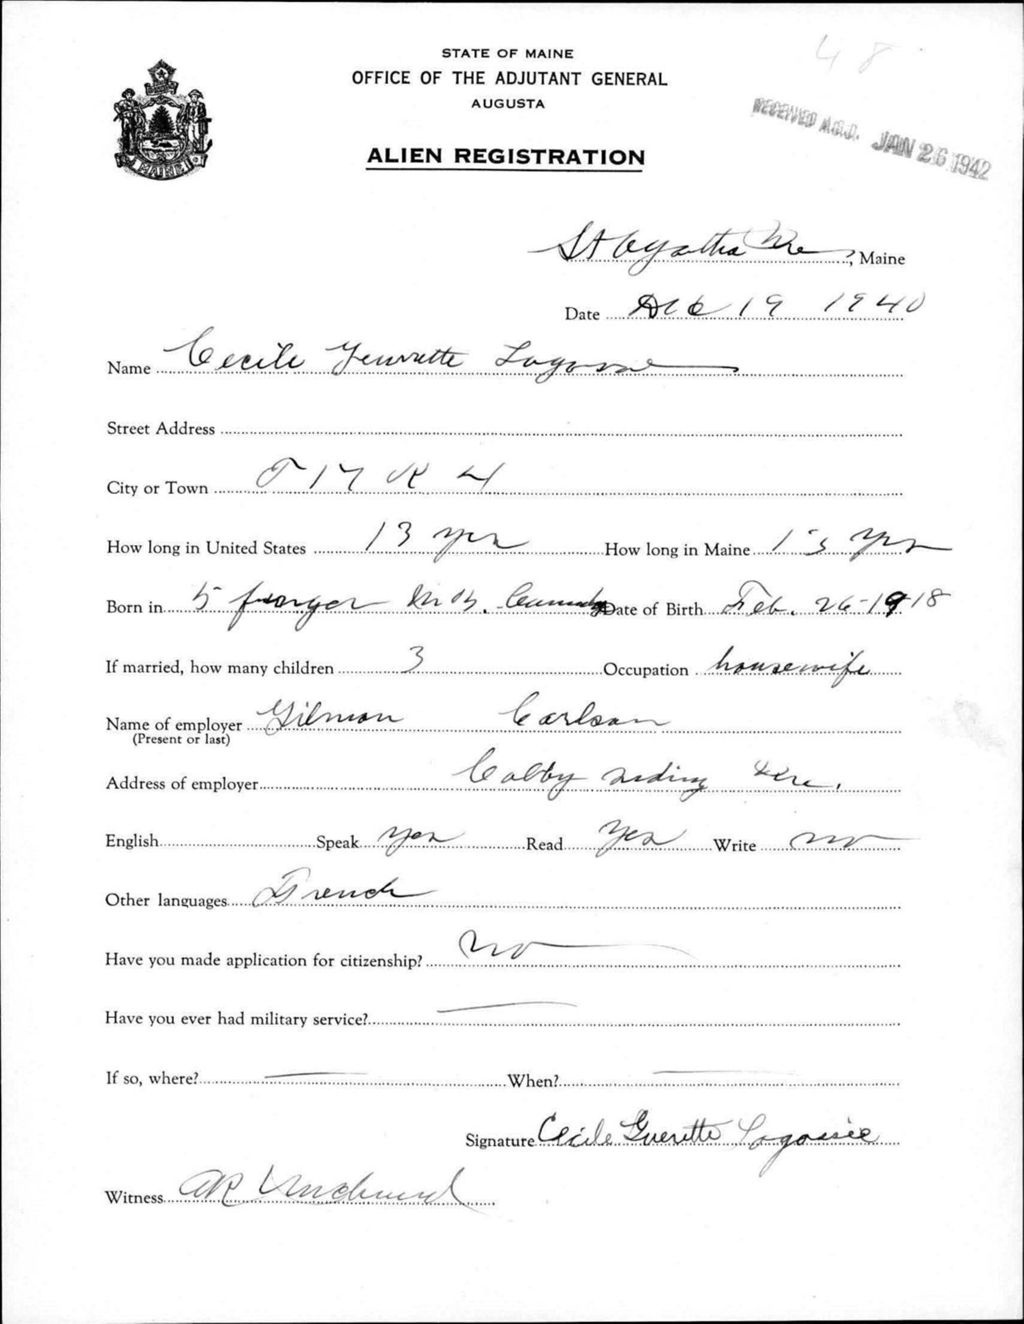 48
STATE OF MAINE
OFFICE OF THE ADJUTANT GENERAL
AUGUSTA
RECEIVED A.G.O. JAN 26 1942
ALIEN REGISTRATION
MAINE
St Agatha Me, Maine
Date Dec 19 1940
Name Cecile
Street Address
City or Town T 17 R 4
How long in United States 13 yrs How long in Maine 13 yrs
Born in N B. Canada Date of Birth Feb. 26-1918
If married, how many children 3 Occupation housewife
Name of employer Gilman Carlson
(Present or last)
Address of employer Colby Siding Me.
English Speak yes Read Yes Write no
Other languages French
Have you made application for citizenship? no
Have you ever had military service?
If so, where? When?
Signature Cecile Guerette
Witness